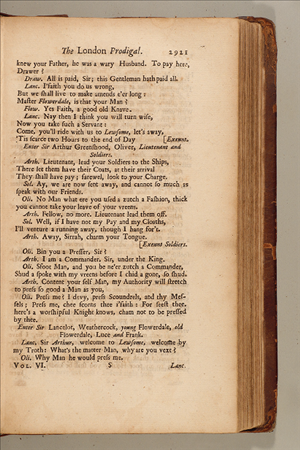 The London Prodigal. 2921
knew your Father, he was a wary Husband. To pay here,
Drawer?
Draw. All is paid, Sir; this Gentleman hath paid all.
Lanc. I'faith you do us wrong,
But we shall live to make amends e'er long:
Master Flowerdale, is that your Man?
Flow. Yes Faith, a good old Knave.
Lanc. Nay then I think you will turn wife,
Now you take such a Servant:
Come, you'll ride with us to Lewsome, let's away,
'Tis scarce two Hours to the end of Day [Exeunt.
Enter Sir Arthur Greenshood, Oliver, Lieutenant and
Soldiers.
Arth. Lieutenant, lead your Soldiers to the Ships,
There let them have their Coats, at their arrival
They shall have pay; farewel, look to your Charge.
Sol. Ay, we are now sent away, and cannot so much as
speak with our Friends.
Oli. No Man what ere you used a zutch a Fashion, thick
you cannot take your leave of your vreens.
Arth. Fellow, no more. Lieutenant lead them off.
Sol. Well, if I have not my Pay and my Cloaths,
I'll venture a running away, though I hang for't.
Arth. Away, Sirrah, charm your Tongue.
[Exeunt Soldiers.
Oli. Bin you a Presser, Sir?
Arth. I am a Commander, Sir, under the King.
Oli. Sfoot Man, and you be ne'er zutch a Commander,
Shud a spoke with my vreens before I chid a gone, so shud.
Arth. Content your self Man, my Authority will stretch
to press so good a Man as you.
Oli. Press me? I devy, press Scoundrels, and thy Mes-
sels; Press me, chee scorns thee i'faith: For seest thee,
here's a worshipful Knight knows, cham not to be pressed
by thee.
Enter Sir Lancelot, Weathercock, young Flowerdale, old
Flowerdale, Luce and Frank.
Lanc. Sir Arthur, welcome to Lewsome, welcome by
my Troth: What's the matter Man, why are you vext?
Oli. Why Man he would press me.
VOL. VI. S Lanc.